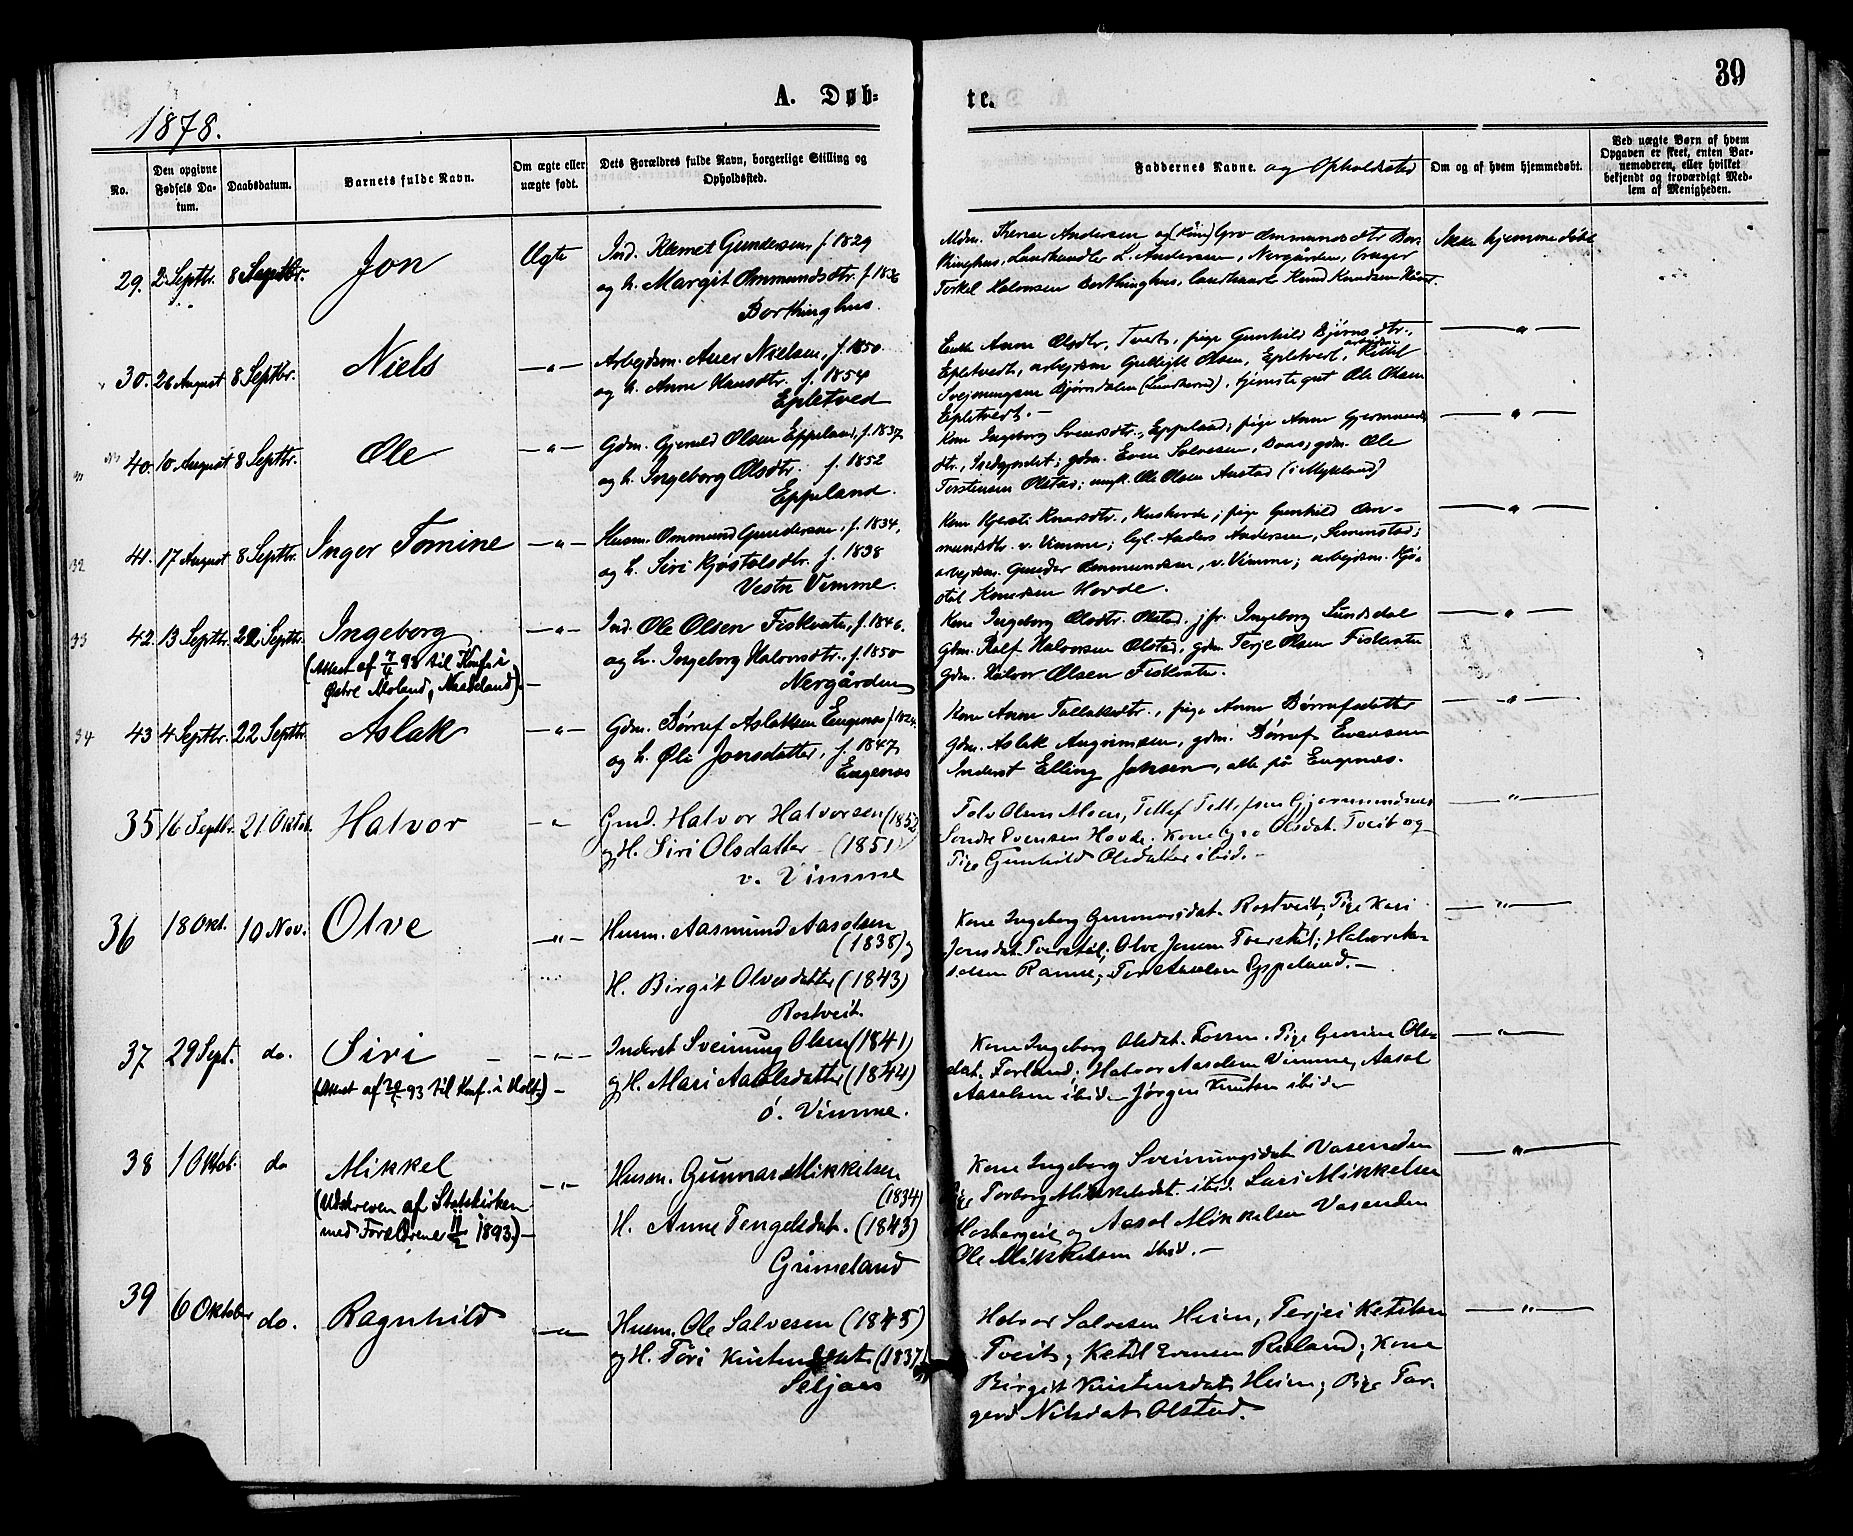 39
A. Døb- te.
1878.
No.
Den opgivne Fødsels Da-
tum.
Daabsdatum.
Barnets fulde Navn.
Om ægte eller
uægte født.
Dets Forældres fulde Navn, borgerlige Stilling og
Opholdssted.
Faddernes Navne. og Opholdssted
Om og af hvem hjemmedøbt.
Ved uægte Børn af hvem
Opgaven er skeet, enten Bar-
nemoderen, eller hvilket
bekjendt og troværdigt Med-
lem af Menigheden.
29. 2 Septbr. 8 Septbr. Jon Ægte
Ind. Klemet Gundersen, f. 1829
og h. Margit Ommundsdtr. f. 1836
Borthinghus.
Andersen og Gro Ommundsdtr Bor-
thinghus, Landhandler L. Andersen, Nergården, bruger
Torkel Halvorsen Borthinghus, Knud Knudsen
Ikke hjemmedøbt
30. 26 August 8 Septbr. Niels —〃—
Arbeidsm. Nielsen, f. 1850
og h. Anne Hansdtr. f. 1854
Epletved
Enke Anne Olsdtr, Tveit, pige Gunhild Bjørnsdtr.,
Epletvedt, arbeidsm Gulleik Olsen, Epletvedt, arbeidsm. Kittel
Svejnungsen Bjørnsdalen, tjenstegut Ole Olsen
Epletvedt. —
—〃—
40. 10 August 8 Septbr. Ole —〃—
Gdm. Gjeruld Olsen Eppeland, f. 1837
og h. Ingeborg Olsdtr. f. 1852
Eppeland.
Kone Ingeborg Svensdtr., Eppeland; pige Anne Gjermunds-
dtr., gdm. Even Salvesen, gdm. Ole
Torstensen Olstad; ungk. Ole Olsen Austad (i Mykland)
—〃—
32 41. 17 August 8 Septbr. Inger Tomine —〃—
Husm. Ommund Gundersen, f. 1834,
og h. Siri Kjøstolsdtr. f. 1838
Vestre Vimme.
Kone Kjersti Knudsdtr., pige Gunhild Om-
mundsdtr. v. Vimme; Anders Andersen, Simonstad;
arbejdsm. Gunder Ommundsen, v. Vimme; arbejdsm. Kjø-
stol Knudsen Hovde.
—〃—
33 42. 13 Septbr. 22 Septbr. Ingeborg —〃—
(Attest af 7/4 93 til Konf. i
Østre Moland, Nedeland) —
Ind. Ole Olsen Fiskvatn, f. 1846.
og h. Ingeborg Halvorsdtr., f. 1850
Nergården
Kone Ingeborg Olsdtr. Olstad. jfr. Ingeborg Sundsdal
gdm. Rolf Halvorsen Olstad, gdm Terje Olsen Fiskvatn
gdm. Halvor Olsen Fiskvatn.
—〃—
34 43 4 Septbr. 22 Septbr. Aslak —〃—
Gdm. Børruf Aslaksen Engenæs f. 1824.
og h. Øli Jonsdatter, f. 1847,
Engenæs
Kone Anne Tallaksdtr., pige Anne Børrufsdatter
gdm. Aslak Angrimsen, gdm. Børruf Evensen
Inderst Elling Johsen, alle på Engenæs.
—〃—
35 16 Septbr. 21. Oktob. Halvor —〃
Gmd. Halvor Halvorsen (1852
og H. Siri Olsdatter — (1851)
v. Vimme
Tolv Olsen Moen, Tellef Tellefsen Gjermundnes
Sondre Svensen Hovde. Kone Gro Olsdat. Tveit og
Pige Gunhild Olsdatter ibid. —
—〃—
36 18 Okt. 10 Nov. Olve —〃—
Husm. Aasmund Aasolsen
(1838) og
H. Birgit Olvesdatter (1843)
Rostveit.
Kone Ingeborg Gunnarsdat. Rostveit; Pige Kari
Jonsdat. Tverstøl; Olve Jonsen Tverstøl; Halvor Aa-
solsen Ramse; Tor Aasolsen Eppeland. —
—〃—
37 29 Sept. do. Siri — —〃—
(Attest af 93 til Konf. i Holt.) —
Inderst Sveinung Olsen (1841)
og H. Mari Aasolsdatter (1844)
ø. Vimme.
Kone Ingeborg Olsdat. Fossen. Pige Gunine Ols-
dat. Forland; Halvor Aasolsen Vimme, Aasol
Aasolsen ibid — Jørgen Knutsen ibid —
—〃—
38 1 Oktob. do Mikkel —〃—
(Udskreven af Statskirken
med Forældrene 11/2 1893.) —
Husm. Gunnar Mikkelsen
(1834)
H. Anne Tengelsdat. (1843)
Grimeland
Kone Ingeborg Sveinungsdat Vasenden
Pige Torborg Mikkelsdat. ibid. Lars Mikkelsen
og Aasol Mikkelsen Vasenden
Ole Mikkelsen ibid. —
—〃—
39 6 Oktober do. Ragnhild —〃—
Husm. Ole Salvesen (1845)
og H. Tori Knutsdat. (1837)
Seljaas
Halvor Salvesen Heim, Terjei Ketilsen
Tveit; Ketil Evensen Risland; Kone
Birgit Knutsdat. Heim; Pige Tor-
gerd Nilsdat. Olstad.
—〃—